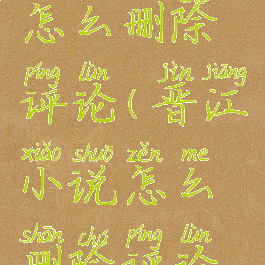 怎么删除
píng lùn jìn jiāng
评论(晋江
xiǎo shuō zěn me
小说怎么
shān chú píng lùn
删除评论